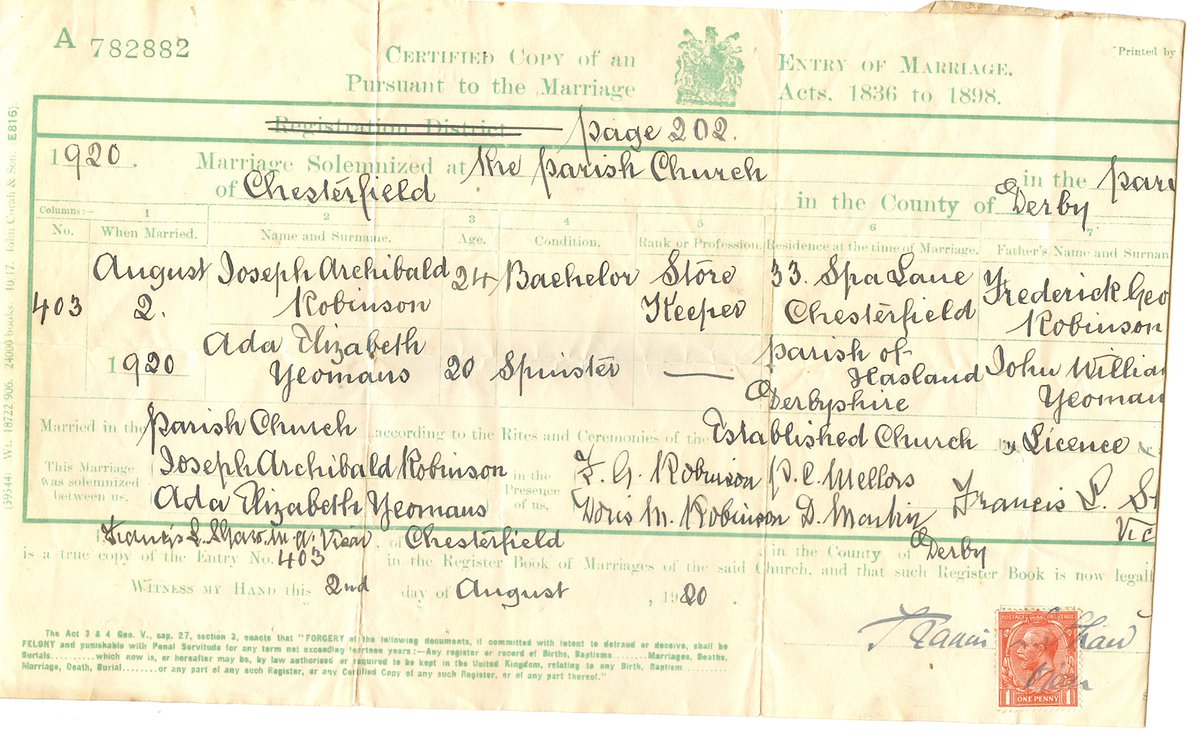 A 782882
CERTIFIED COPY OF an ENTRY OF MARRIAGE.
Printed by
Pursuant to the Marriage Acts, 1836 to 1898.
Registration District page 202.
1920. Marriage Solemnized at the Parish Church in the
of Chesterfield in the County of Derby
Columns:— 1 2 3 4 5 6 7
No. When Married. Name and Surname. Age. Condition. Rank or Profession. Residence at the time of Marriage. Father's Name and
403 August 2. 1920
Joseph Archibald Robinson 24 Bachelor Store Keeper 33. Spa Lane Chesterfield Frederick Geo Robinson
Ada Elizabeth Yeomans 20 Spinster — Parish of Hasland Derbyshire John
Married in the Parish Church according to the Rites and Ceremonies of the Established Church by Licence
This Marriage was solemnized between us,
Joseph Archibald Robinson
Ada Elizabeth Yeomans
in the Presence of us,
F. G. Robinson P. C. Mellors
Doris M. Robinson D.
Francis L.
Francis L. Shaw M.A. Vicar of Chesterfield in the County of Derby
is a true copy of the Entry No. 403 in the Register Book of Marriages of the said Church, and that such Register Book is now
WITNESS MY HAND this 2nd day of August, 1920.
Shaw
Vicar
The Act 3 & 4 Geo. V., cap. 27, section 3, enacts that "FORGERY of the following documents, if committed with intent to defraud or deceive, shall be
FELONY and punishable with Penal Servitude for any term not exceeding fourteen years:—Any register or record of Births, Baptisms........Marriages, Deaths,
Burials..........which now is, or hereafter may be, by law authorised or required to be kept in the United Kingdom, relating to any Birth, Baptism..........
Marriage, Death, Burial........or any part of any such Register, or any Certified Copy of any such Register, or of any part thereof."
POSTAGE REVENUE
1 ONE PENNY 1
E816).